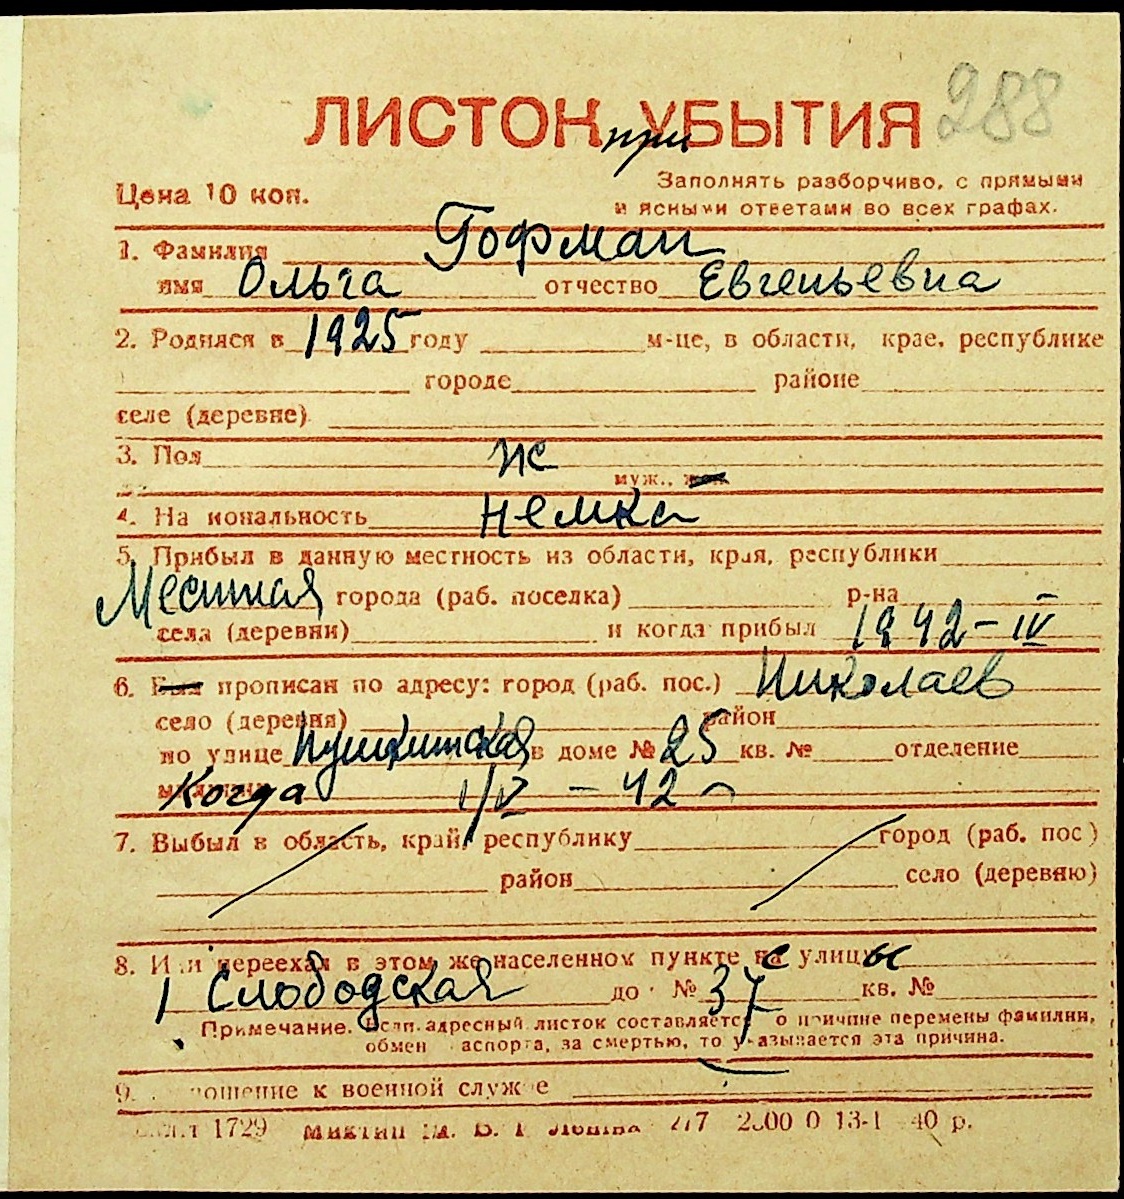 288
ЛИСТОК УБЫТИЯ
при
Цена 10 коп.
Заполнять разборчиво, с прямыми
и ясными ответами во всех графах.
1. Фамилия Гофман
имя Ольга отчество Евгеньевна
2. Родился в 1925 году м-це, в области, крае, республике
городе районе
селе (деревне)
3. Пол ж
муж., жен.
4. На иональность немка
5. Прибыл в данную местность из области, края, республики
Местная города (раб. поселка) р-на
села (деревни) и когда прибыл 1942-IV
6. Был прописан по адресу: город (раб. пос.) Николаев
село (деревня) район
по улице Пушкинская в доме № 25 кв. № отделение
Когда 1/V - 42
7. Выбыл в область, край, республику город (раб. пос)
район село (деревню)
8. Или переехал в этом же населенном пункте на с улицы
1 Слободская до № 37 кв. №
Примечание. Если адресный листок составляется о причине перемены фамилии,
обмен аспорта, за смертью, то указывается эта причина.
9. ношение к военной служ е
1729 2/7 13-1 40 р.